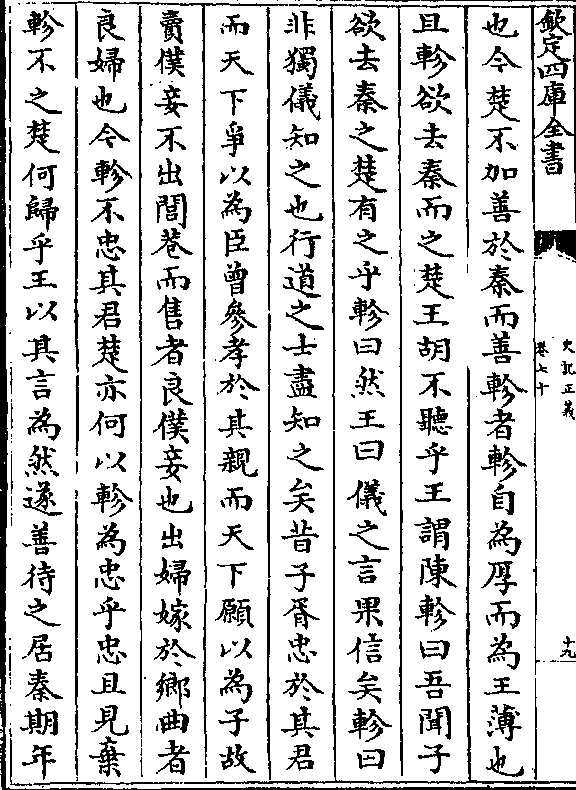 欽定四庫全書
史記正義
卷七十
十九
也今楚不加善於秦而善軫者軫自為厚而為王薄也
且軫欲去秦而之楚王胡不聽乎王謂陳軫曰吾聞子
欲去秦之楚有之乎軫曰然王曰儀之言果信矣軫曰
非獨儀知之也行道之士盡知之矣昔子胥忠於其君
而天下爭以為臣曾參孝於其親而天下願以為子故
賣僕妾不出閭巷而售者良僕妾也出婦嫁於鄉曲者
良婦也令軫不忠其君楚亦何以軫為忠乎忠且見棄
軫不之楚何歸乎王以其言為然遂善待之居秦期年